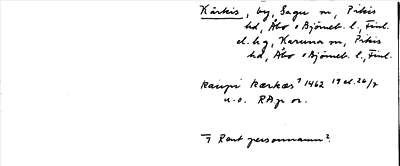 Kärkis, by, Sagu sn, Pikis
hd, Åbo o Björneb. l., Finl.
el. by, Karuna sn, Pikis
hd, Åbo o Björneb. l., Finl.
kaupi kærkæs ⁊ 1462 19 el. 26/7
u.o. RAp or.
⁊ Rent personnamn?